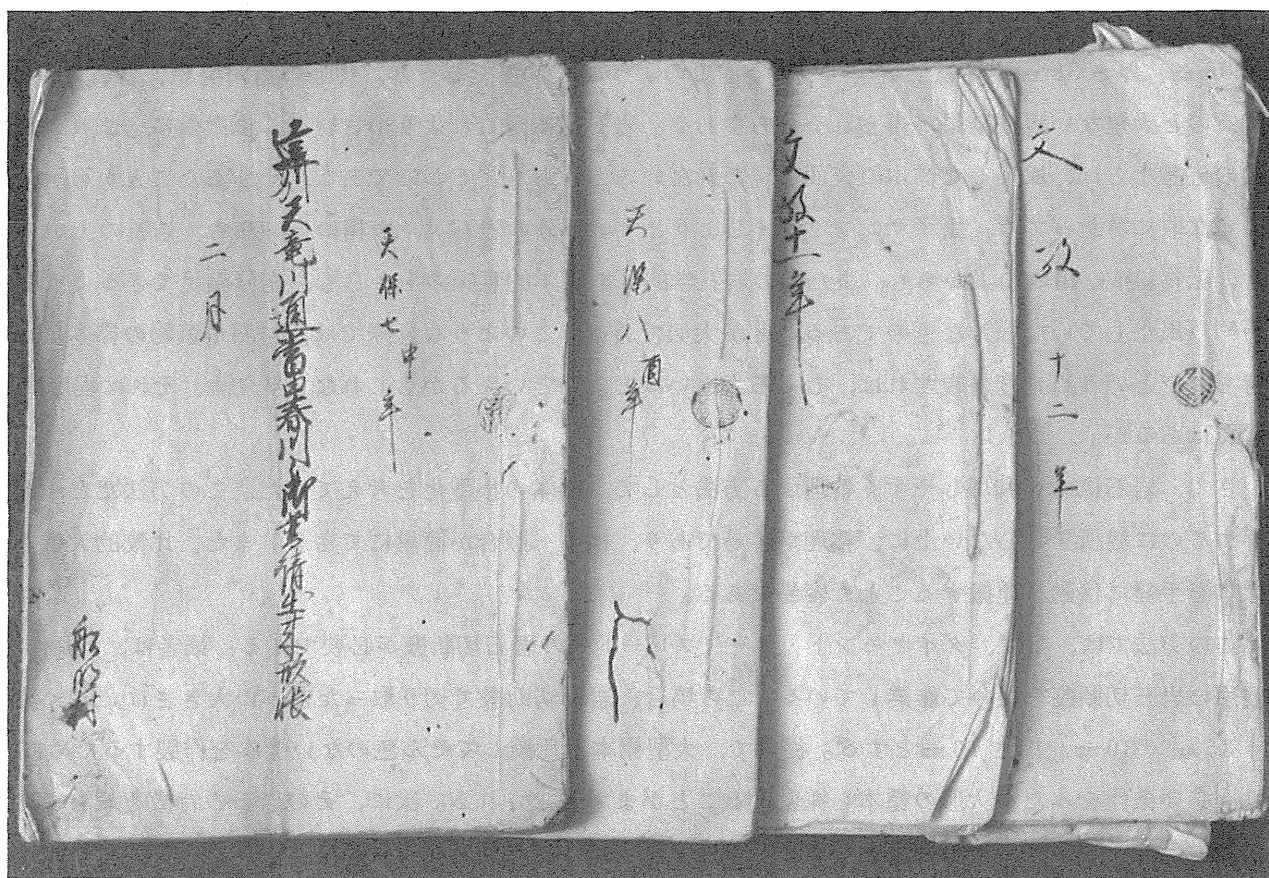 文政十二年
文政十一年
天保八酉年
天保七申年
遠州天竜川通當申春川御普請出来形帳
二月
船明村